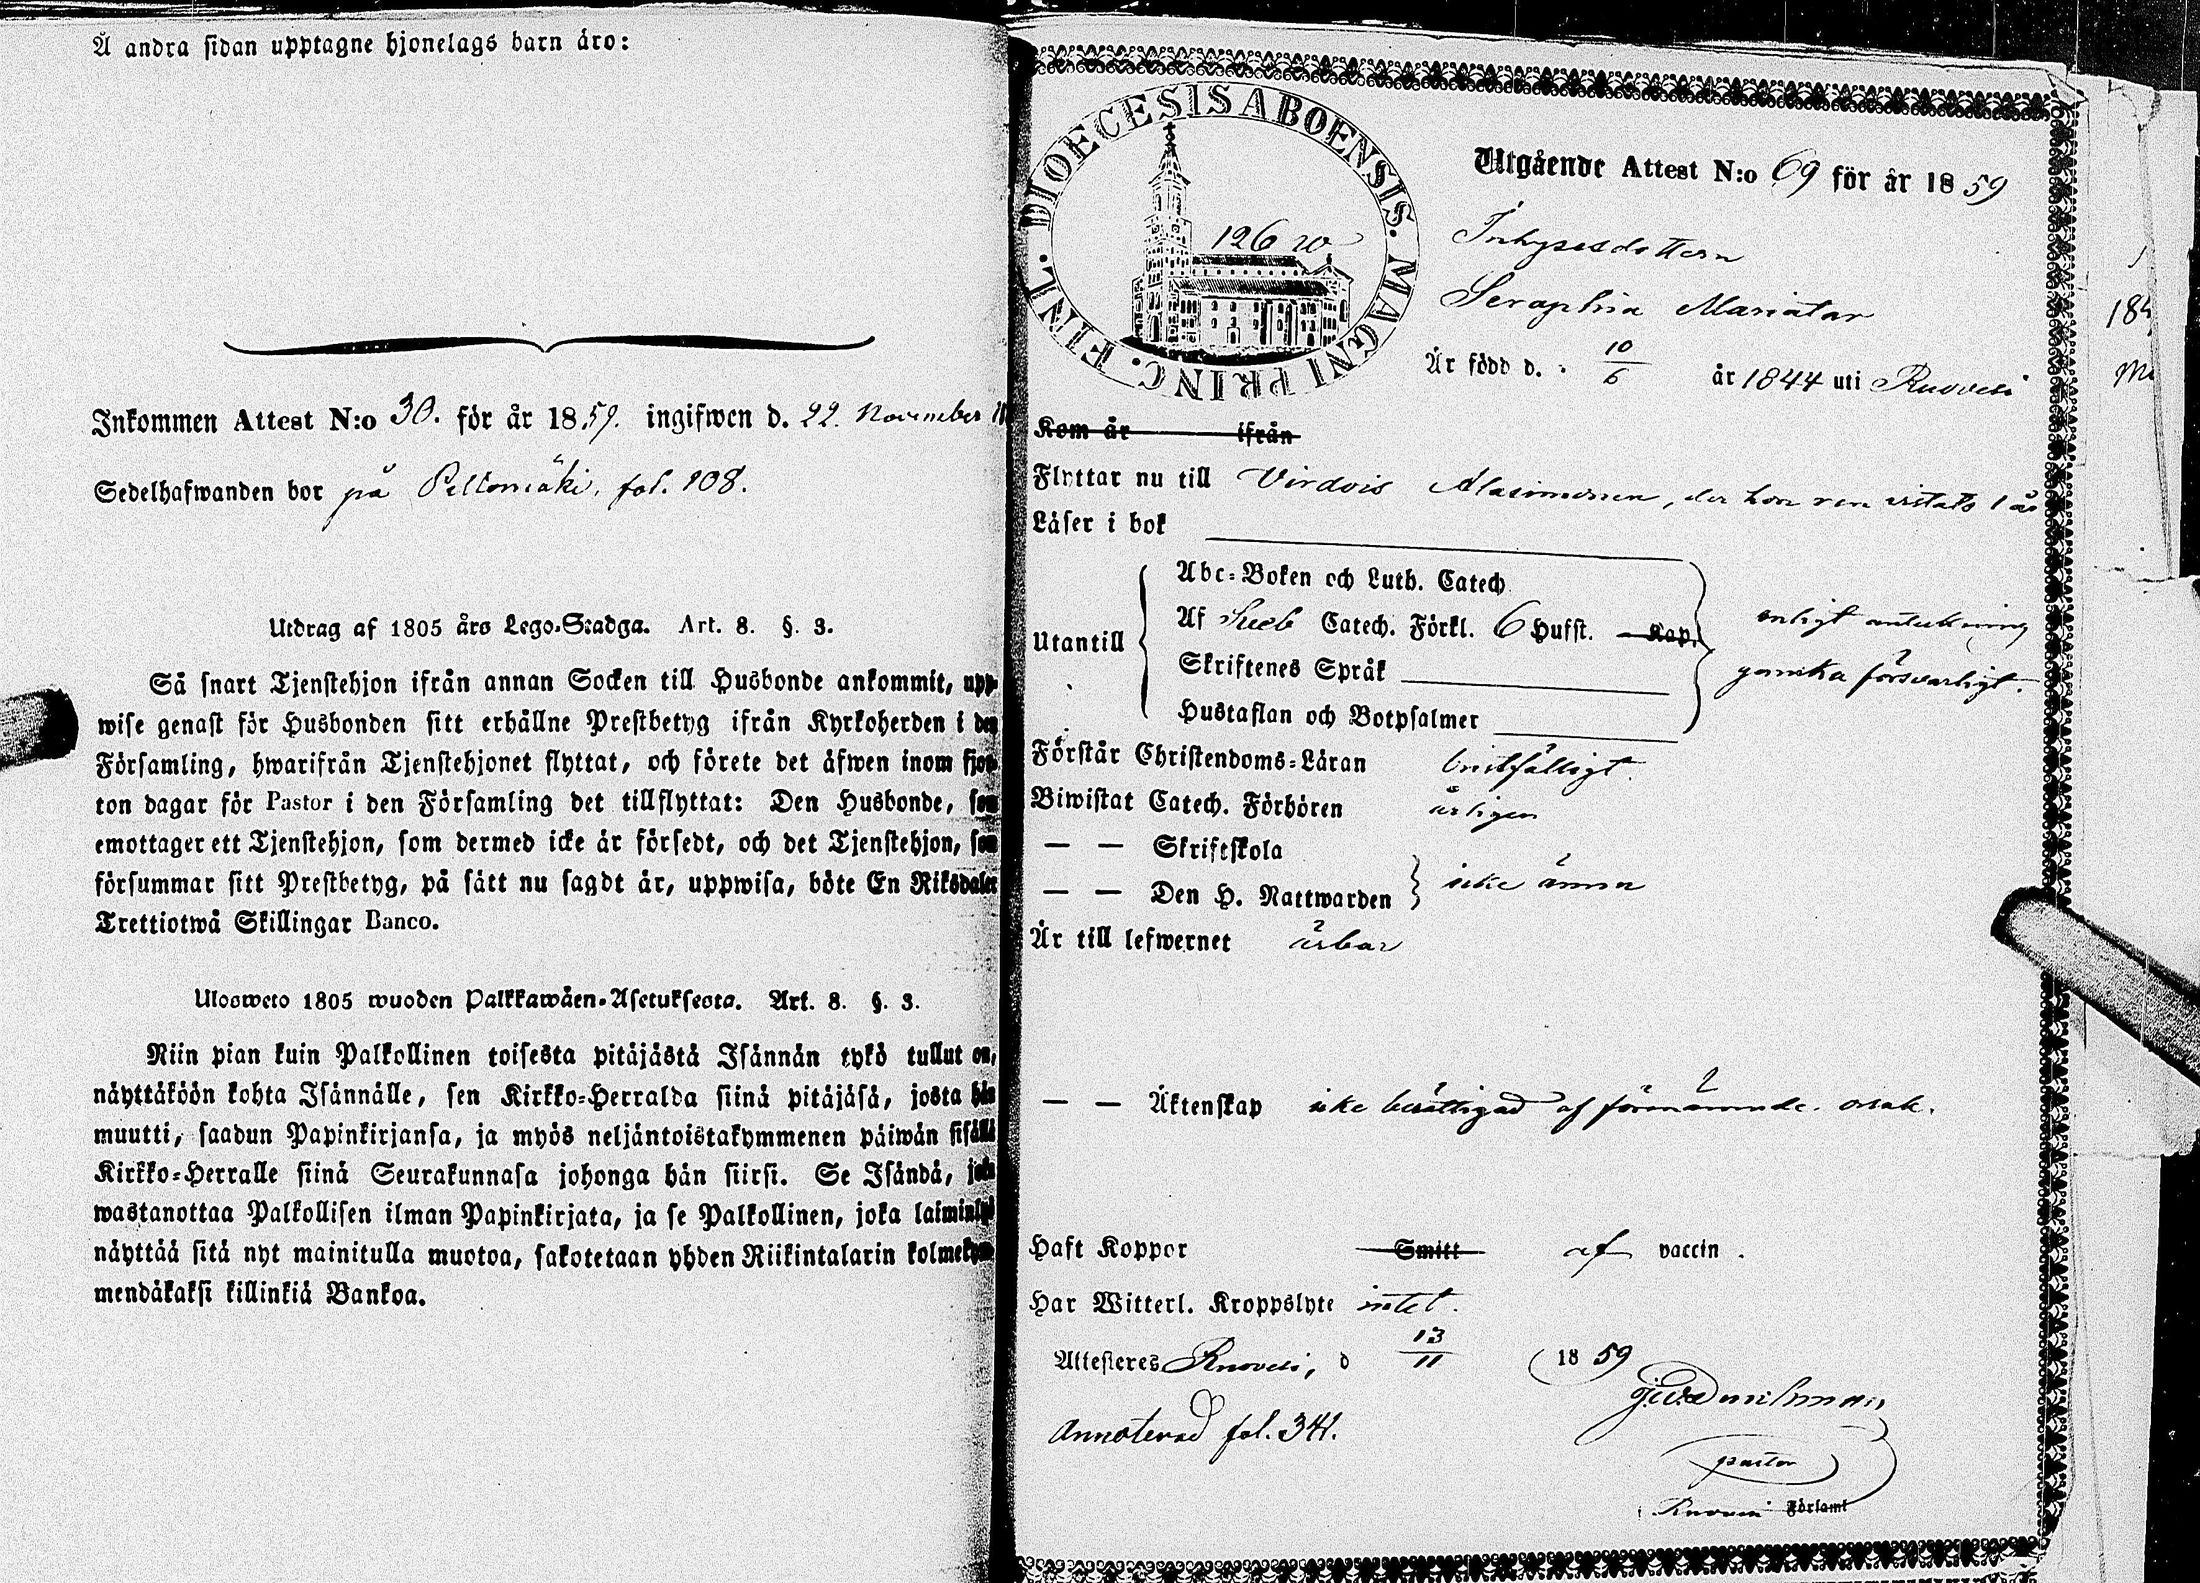 Å andra sidan upptagne hjonelags barn äro:
Inkommen Attest N:o 30. för år 1859. ingifwen d. 22. November
Sedelhafwanden bor på Peltomäki, fol. 108.
Utdrag af 1805 års Lego-Stadga. Art. 8. §. 3.
Så snart Tjenstehjon ifrån annan Socken till Husbonde ankommit, upp-
wise genast för Husbonden sitt erhållne Prestbetyg ifrån Kyrkoherden i den
Församling, hwarifrån Tjenstehjonet flyttat, och förete det äfwen inom fjor-
ton dagar för Pastor i den Församling det tillflyttat: Den Husbonde, som
emottager ett Tjenstehjon, som dermed icke är försedt, och det Tjenstehjon, som
försummar sitt Prestbetyg, på sätt nu sagdt är, uppwisa, böte En Riksdaler
Trettiotwå Skillingar Banco.
Ulosweto 1805 wuoden Palkkawäen-Asetuksesta. Art. 8. §. 3.
Niin pian kuin Palkollinen toisesta pitäjästä Isännän tykö tullut on,
näyttäköön kohta Isännälle, sen Kirkko-Herralda siinä pitäjäsä, josta hän
muutti, saadun Papinkirjansa, ja myös neljäntoistakymmenen päiwän sisällä
Kirkko-Herralle siinä Seurakunnasa johonga hän siirsi. Se Isändä, joka
wastanottaa Palkollisen ilman Papinkirjata, ja se Palkollinen, joka laiminlyö
näyttää sitä nyt mainitulla muotoa, sakotetaan yhden Riikintalarin kolmekym-
mendäkaksi killinkiä Bankoa.
DIOECESIS ABOENSIS. MAGNI PRINC. FINL.
126
Utgående Attest N:o 69 för år 1859
Inhysesdottern
Seraphia Mariatar
Är född d. 10/6 år 1844 uti Ruovesi
Kom år ifrån
Flyttar nu till Virdois Alasimonen, der hon ren vistats 1 år
Läser i bok
Utantill
Abc-Boken och Luth. Catech.
Af Sveb Catech. Förkl. 6 Hufst. Kap.
Skriftenes Språk
Hustaflan och Botpsalmer
enligt anteckning
ganska försvarligt.
Förstår Christendoms-Läran enfaldigt.
Biwistat Catech. Förhören årligen
— — Skriftskola
— — Den H. Nattwarden } icke ännu
Är till lefwernet ärbar
— — Äktenskap icke berättigad af förenämnde orsak.
Haft Koppor Smitt af vaccin.
Har Witterl. Kroppslyte intet.
Attesteres Ruovesi, d 13/11 1859
pastor
Annoterad fol. 341.
Ruovesi Församl
184